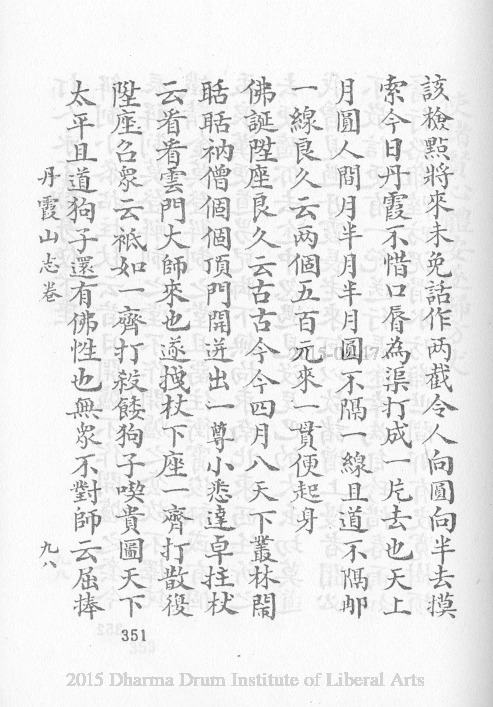 該檢點將來未免話作两截令人向圓向半去摸
索今日丹霞不惜口唇為渠打成一片去也天上
月圓人間月半月半月圓不隔一線且道不隔那
一線良久云两個五百元來一貫便起身
佛誕陞座良久云古古今今四月八天下叢林閙
聒聒衲僧個個頂門開迸出一尊小悉達卓拄杖
云看看雲門大師來也遂拽杖下座一齊打散復
陞座召眾云祗如一齊打殺餧狗子喫貴圖天下
太平且道狗子還有佛性也無眾不對師云屈捧
丹霞山志卷 九八
351
2015 Dharma Drum Institute of Liberal Arts